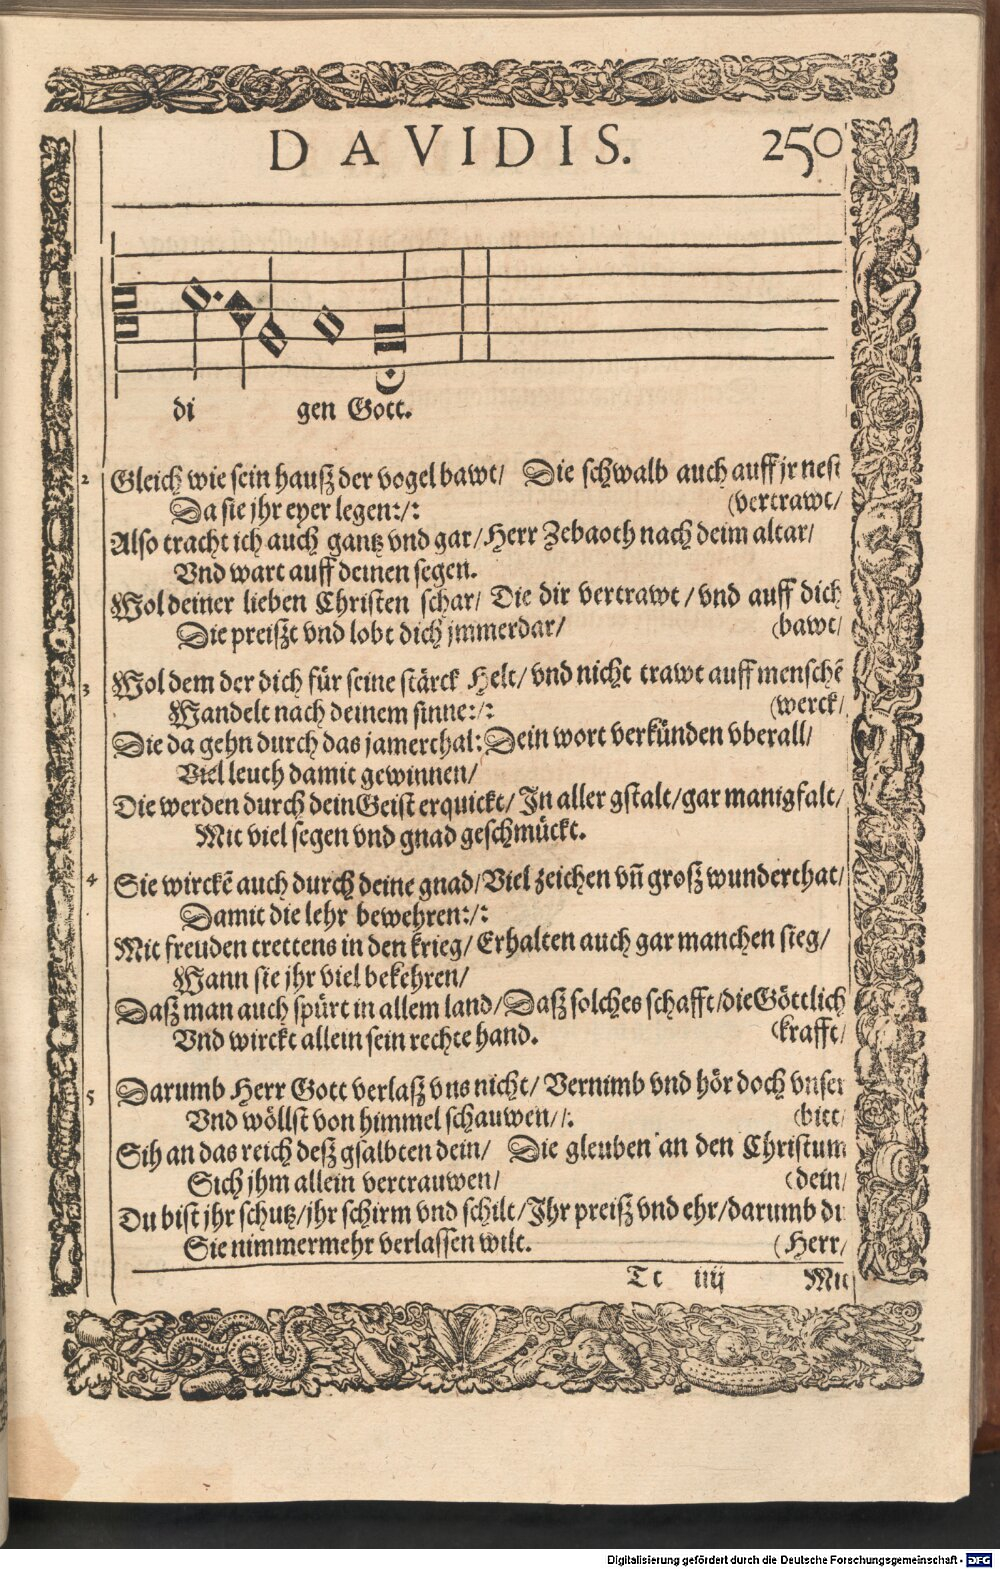 DAVIDIS. 250
di gen Gott.
2 Gleich wie sein hauß der vogel bawt/ Die schwalb auch auff jr nest
Da sie jhr eyer legen:/: (vertrawt/
Also tracht ich auch gantz vnd gar/ Herr Zebaoth nach deim altar/
Vnd wart auff deinen segen.
Wol deiner lieben Christen schar/ Die dir vertrawt/ vnd auff dich
Die preißt vnd lobt dich jmmerdar/ (bawt/
3 Wol dem der dich für seine stärck Helt/ vnd nicht trawt auff menschẽ
Wandelt nach deinem sinne:/: (werck/
Die da gehn durch das jamerthal: Dein wort verkünden vberall/
Viel leuth damit gewinnen/
Die werden durch dein Geist erquickt/ In aller gstalt/ gar manigfalt/
Mit viel segen vnd gnad geschmückt.
4 Sie wirckẽ auch durch deine gnad/ Viel zeichen vñ groß wunderthat/
Damit die lehr bewehren:/:
Mit freuden trettens in den krieg/ Erhalten auch gar manchen sieg/
Wann sie jhr viel bekehren/
Daß man auch spürt in allem land/ Daß solches schafft/ die Göttlich
Vnd wirckt allein sein rechte hand. (krafft/
5 Darumb Herr Gott verlaß vns nicht/ Vernimb vnd hör doch vnser
Vnd wöllst von himmel schauwen/:. (bitt/
Sih an das reich deß gsalbten dein/ Die gleuben an den Christum
Sich jhm allein vertrauwen/ (dein/
Du bist jhr schutz/ jhr schirm vnd schilt/ Ihr preiß vnd ehr/ darumb du
Sie nimmermehr verlassen wilt. (Herr/
Tt iiij Mit
Digitalisierung gefördert durch die Deutsche Forschungsgemeinschaft - DFG